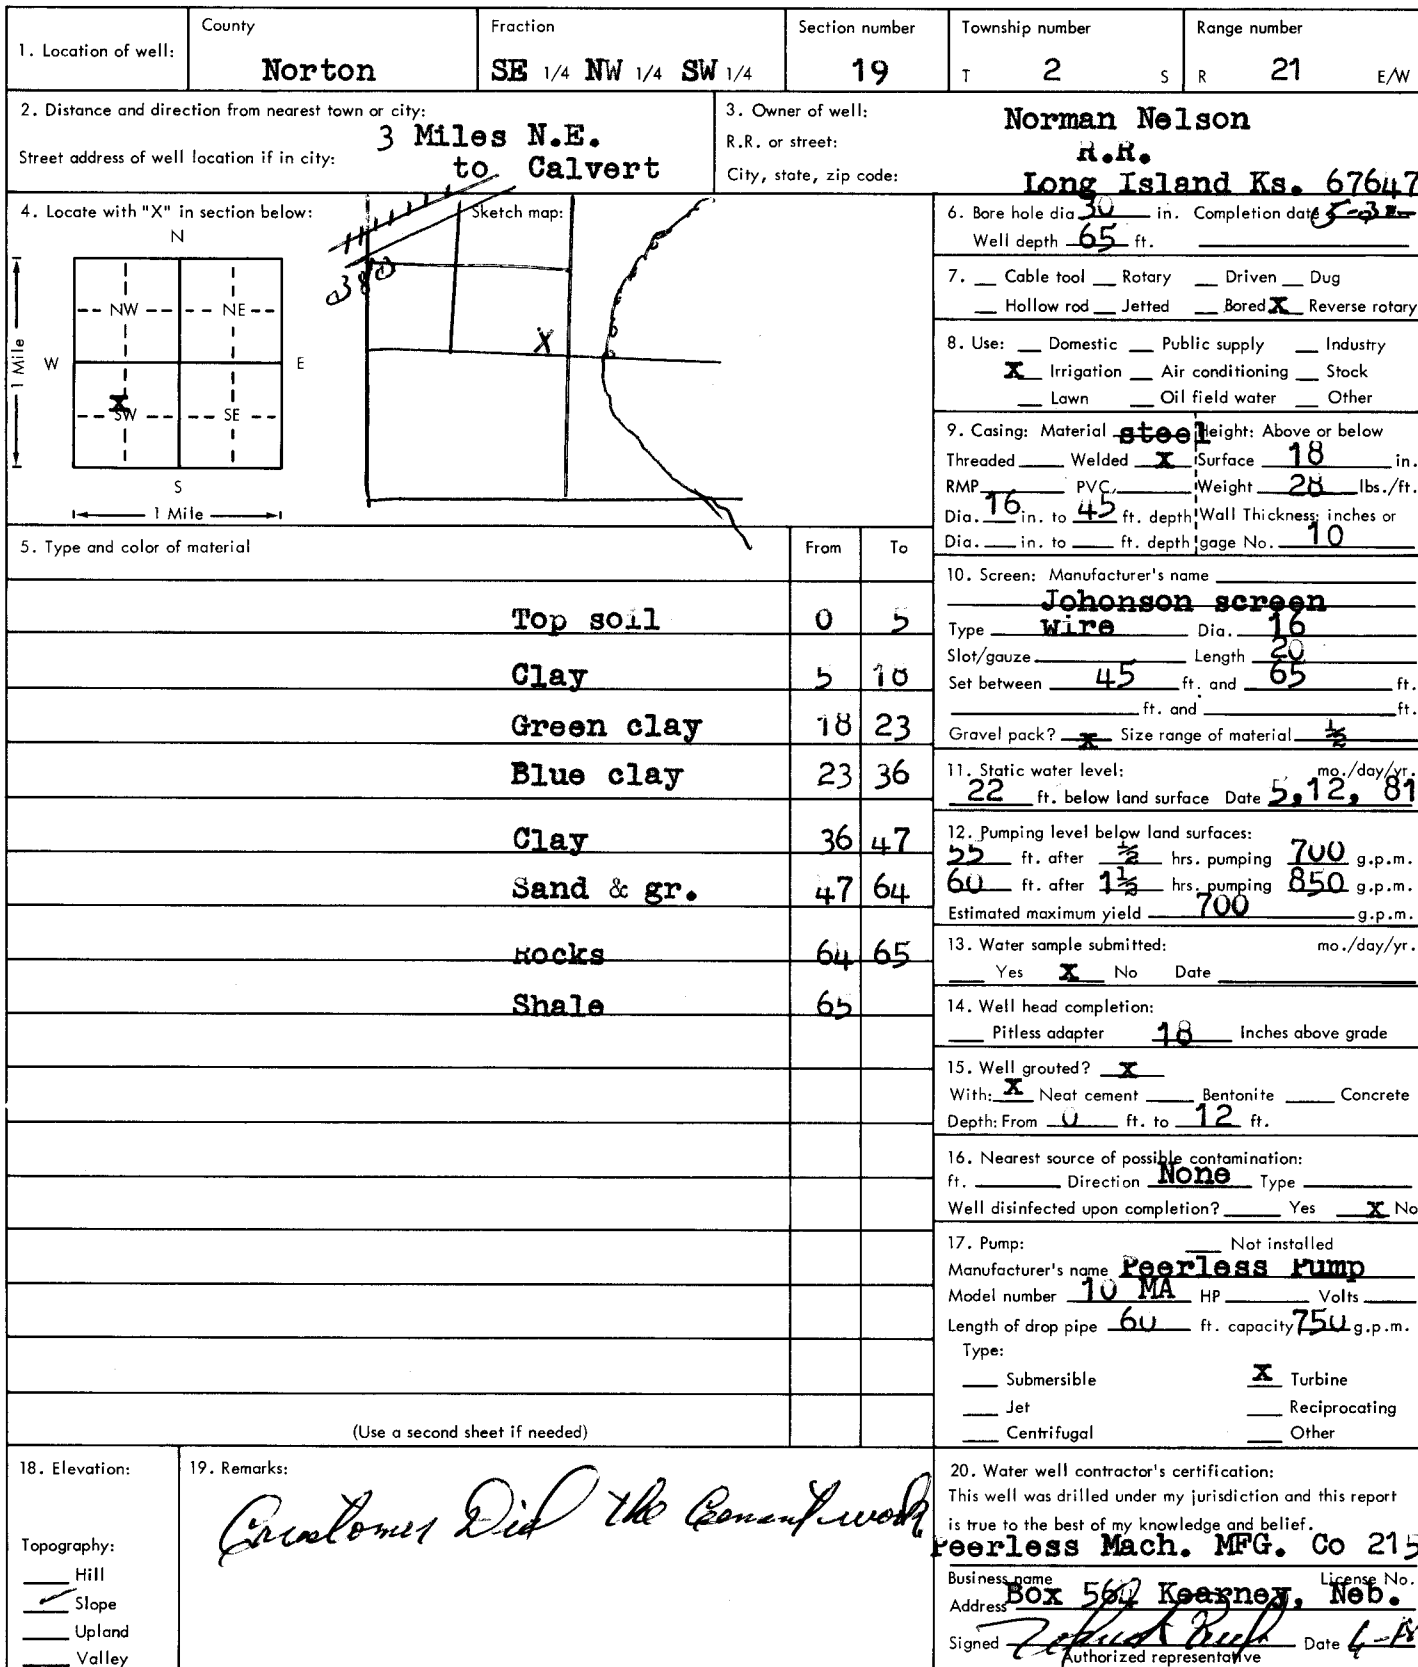 1. Location of well:
County
Norton
Fraction
SE 1/4 NW 1/4 SW 1/4
Section number
19
Township number
T 2 S
Range number
R 21 E/W
2. Distance and direction from nearest town or city:
3 Miles N.E.
Street address of well location if in city:
to Calvert
3. Owner of well:
Norman Nelson
R.R. or street:
R.R.
City, state, zip code:
Long Island Ks. 67647
4. Locate with "X" in section below:
N
NW NE
W E
1 Mile
X
SW SE
S
1 Mile
Sketch map:
X
5. Type and color of material From To
Top soil 0 5
Clay 5 18
Green clay 18 23
Blue clay 23 36
Clay 36 47
Sand & gr. 47 64
Rocks 64 65
Shale 65
(Use a second sheet if needed)
6. Bore hole dia 30 in. Completion date
Well depth 65 ft.
7. __ Cable tool __ Rotary __ Driven __ Dug
__ Hollow rod __ Jetted __ Bored X Reverse rotary
8. Use: __ Domestic __ Public supply __ Industry
X Irrigation __ Air conditioning __ Stock
__ Lawn __ Oil field water __ Other
9. Casing: Material steel Height: Above or below
Threaded ____ Welded X Surface 18 in.
RMP ____ PVC ____ Weight 28 lbs./ft.
Dia. 16 in. to 45 ft. depth Wall Thickness: inches or
Dia. ___ in. to ___ ft. depth gage No. 10
10. Screen: Manufacturer's name
Johonson screen
Type Wire Dia. 16
Slot/gauze ____ Length 20
Set between 45 ft. and 65 ft.
____ ft. and ____ ft.
Gravel pack? X Size range of material ½
11. Static water level: mo./day/yr.
22 ft. below land surface Date 5,12, 81
12. Pumping level below land surfaces:
55 ft. after ½ hrs. pumping 700 g.p.m.
60 ft. after 1½ hrs. pumping 850 g.p.m.
Estimated maximum yield 700 g.p.m.
13. Water sample submitted: mo./day/yr.
___ Yes X No Date ____
14. Well head completion:
___ Pitless adapter 18 Inches above grade
15. Well grouted? X
With: X Neat cement ____ Bentonite ____ Concrete
Depth: From 0 ft. to 12 ft.
16. Nearest source of possible contamination:
ft. ____ Direction None Type ____
Well disinfected upon completion? ____ Yes X No
17. Pump: ___ Not installed
Manufacturer's name Peerless Pump
Model number 10 MA HP ____ Volts ____
Length of drop pipe 60 ft. capacity 750 g.p.m.
Type:
___ Submersible X Turbine
___ Jet ___ Reciprocating
___ Centrifugal ___ Other
18. Elevation:
Topography:
____ Hill
✓ Slope
____ Upland
____ Valley
19. Remarks:
Customer Did the Cement work
20. Water well contractor's certification:
This well was drilled under my jurisdiction and this report
is true to the best of my knowledge and belief.
Peerless Mach. MFG. Co 215
Business name License No.
Address Box 562 Kearney, Neb.
Signed Date
Authorized representative